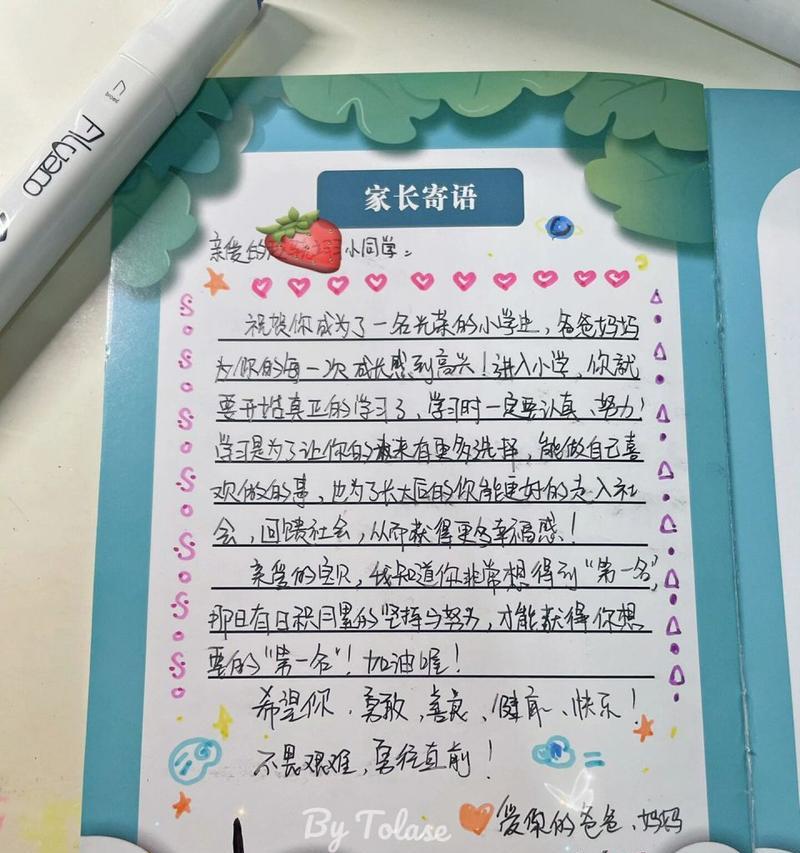 Alyaro
broad
家长寄语
亲爱的 小同学：
祝贺你成为了一名光荣的小学生，爸爸妈妈
为你的每一次成长感到高兴！进入小学，你就
要开始真正的学习了，学习时一定要认真、努力！
学习是为了让你的未来有更多选择，能做自己喜
欢做的事，也为了长大后的你能更好的走入社
会，回馈社会，从而获得更多幸福感！
亲爱的宝贝，我知道你非常想得到“第一名”，
那日积月累的坚持与努力，才能获得你想
要的“第一名”！加油喔！
希望你、勇敢、善良、健康、快乐！
不畏艰难，勇往直前！
爱你的爸爸、妈妈
By Tolase